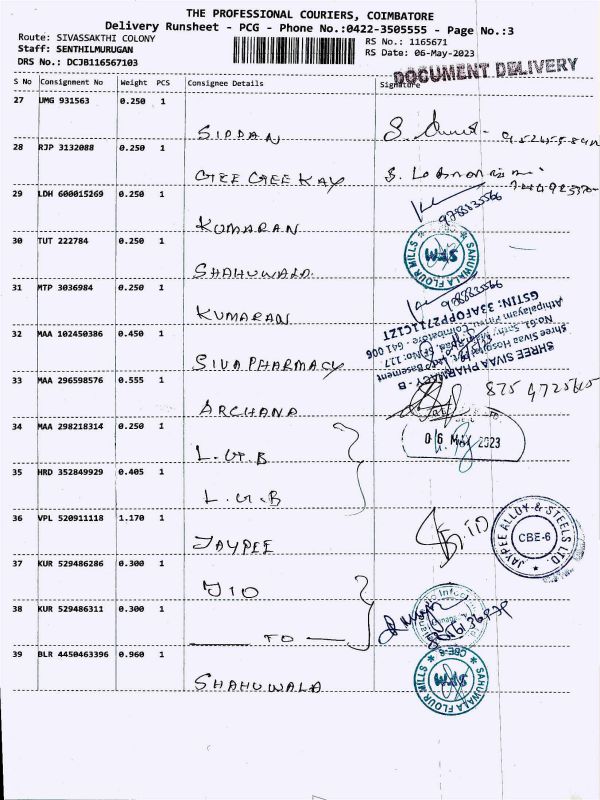 THE PROFESSIONAL COURIERS, COIMBATORE
Delivery Runsheet - PCG - Phone No.:0422-3505555 - Page No.:3
Route: SIVASSAKTHI COLONY
RS No.: 1165671
Staff: SENTHILMURUGAN
RS Date: 06-May-2023
DRS No.: DCJB116567103
DOCUMENT DELIVERY
S No Consignment No Weight PCS Consignee Details Signature
27 UMG 931563 0.250 1
SIDDAN
28 RJP 3132088 0.250 1
GEE GEE KAY
29 LDH 600015269 0.250 1
9788835566
KUMARAN
30 TUT 222784 0.250 1
SAHUWALA FLOUR MILLS
SFM
SHAHUWALA
31 MTP 3036984 0.250 1
9788835566
KUMARAN
32 MAA 102450386 0.450 1
SHREE SIVAA PHARMACY - B
Shree Sivaa Hospital
Basement
No.61, Sathy
Coimbatore - 641 006
GSTIN: 33AFOPP2711C1ZT
SIVA PHARMACY
33 MAA 296598576 0.555 1
ARCHANA
34 MAA 298218314 0.250 1
06 MAY 2023
L.G.B
35 HRD 352849929 0.405 1
L.G.B
36 VPL 520911118 1.170 1
JAYPEE ALLOY & STEELS LTD.
CBE-6
JAYPEE
37 KUR 529486286 0.300 1
JIO
38 KUR 529486311 0.300 1
TO
39 BLR 4450463396 0.960 1
SAHUWALA FLOUR MILLS
CBE-6
SFM
SHAHUWALA